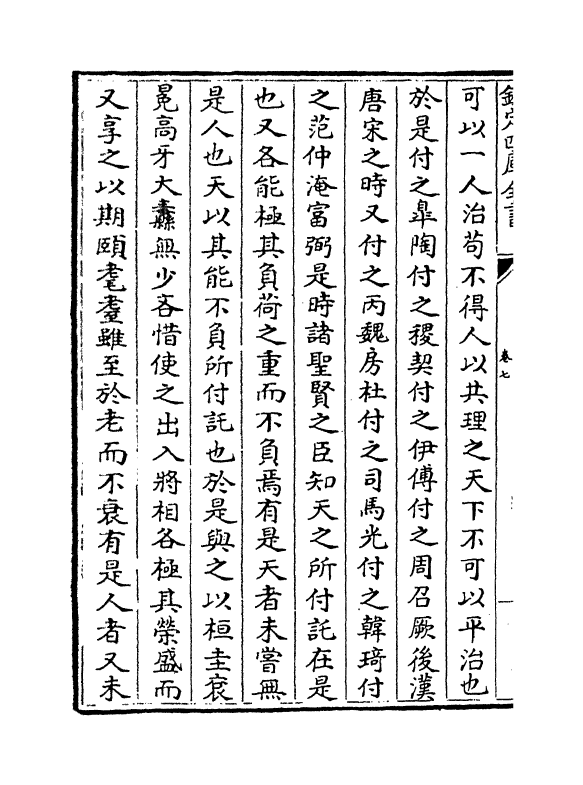 欽定四庫全書
卷七
可以一人治苟不得人以共理之天下不可以平治也
於是付之臯陶付之稷契付之伊傅付之周召厥後漢
唐宋之時又付之丙魏房杜付之司馬光付之韓琦付
之范仲淹富弼是時諸聖賢之臣知天之所付託在是
也又各能極其負荷之重而不負焉有是天者未嘗無
是人也天以其能不負所付託也於是與之以桓圭衮
冕高牙大纛無少吝惜使之出入將相各極其榮盛而
又享之以期頤耄耋雖至於老而不衰有是人者又未